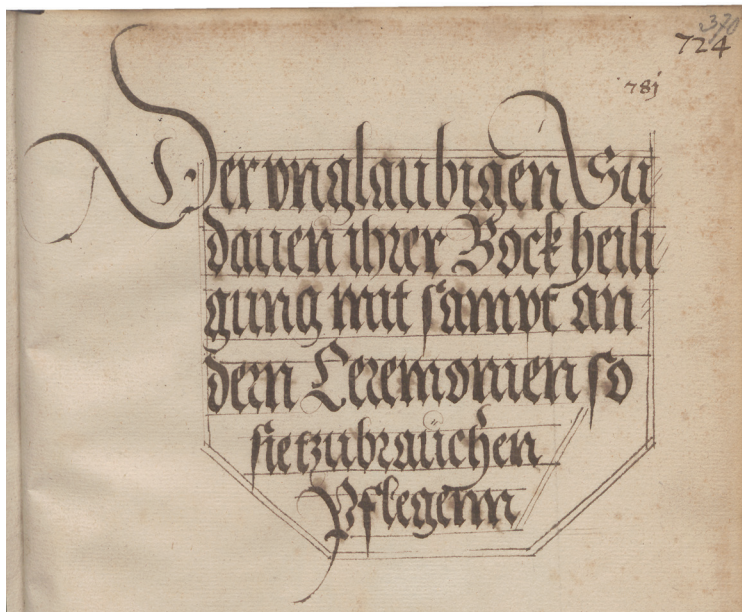 370
724
781
Der vnglaubigen Su
dauen ihrer Bock heili
gung mit sampt an
dern Ceremonien so
sie tzubrauchen
Pflegenn